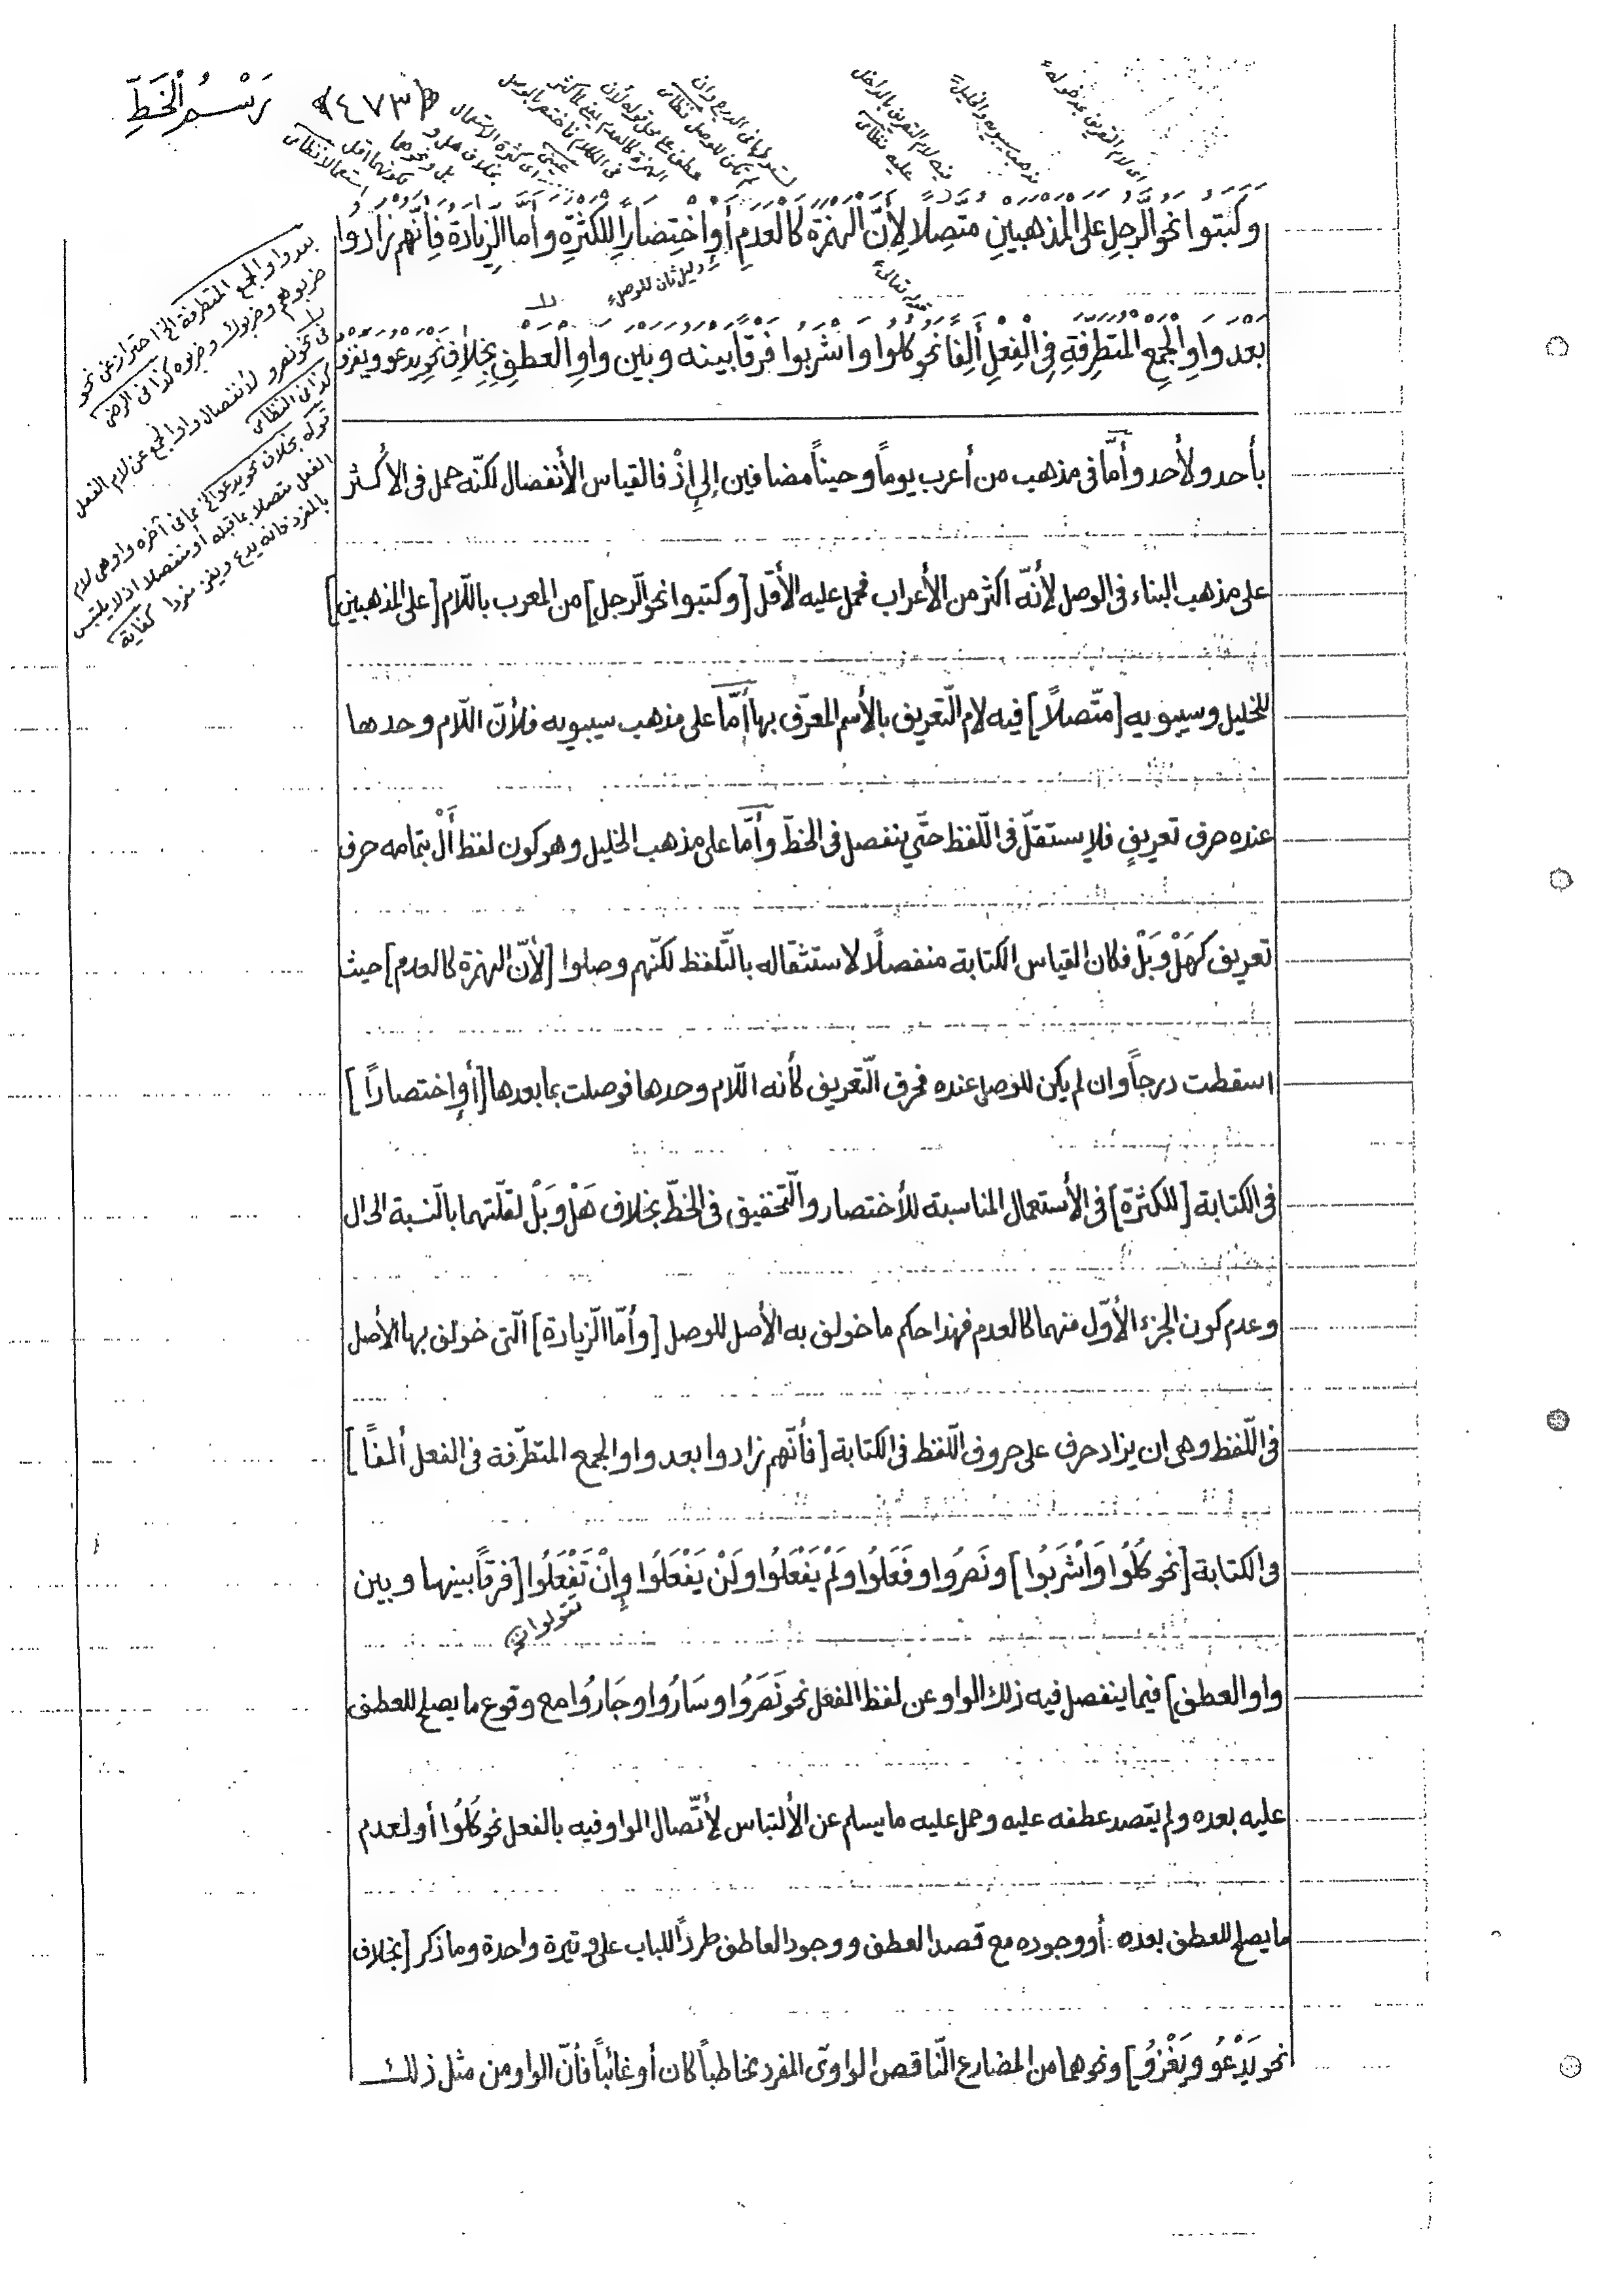 رَسْمُ الْخَطِّ
﴿٤٧٣﴾
وَكَتَبُوا نَحْوَ الرَّجُلِ عَلَى الْمَذْهَبَيْنِ مُتَّصِلًا لِأَنَّ الْهَمْزَةَ كَالْعَدَمِ أَوِ اخْتِصَارًا لِلْكَثْرَةِ وَأَمَّا الزِّيَادَةُ فَإِنَّهُمْ زَادُوا
دليل ثان للوصل
قوله تعالى
بَعْدَ وَاوِ الْجَمْعِ الْمُتَطَرِّفَةِ فِي الْفِعْلِ أَلِفًا نَحْوُ كُلُوا وَاشْرَبُوا فَرْقًا بَيْنَهُ وَبَيْنَ وَاوِ الْعَطْفِ بِخِلَافِ نَحْوِ يَدْعُو وَيَغْزُو
بأحد ولأحد وأمّا فى مذهب من أعرب يوماً وحيناً مضافين إلى إذْ فالقياس الأنفصال لكنّه حمل فى الاكثر
على مذهب البناء فى الوصل لأنّه اكثر من الأعراب فحمل عليه الأقل [وكتبوا نحو الّرجل] من المعرب باللّام [على المذهبين]
للخليل وسيبويه [متّصلاً] فيه لام الّتعريف بالأسم المعرّف بها أمّا على مذهب سيبويه فلأنّ اللّام وحدها
عنده حرف تعريفٍ فلا يستقلّ فى الّلفظ حتّى ينفصل فى الخطّ وأمّا على مذهب الخليل وهو كون لفظ أَلْ بتمامه حرف
تعريف كهَلْ وبَلْ فكان القياس الكتابة منفصلًا لاستثقاله بالتّلفظ لكنّهم وصلوا [لأنّ الهمزة كالعدم] حيث
اسقطت درجاً وان لم يكن للوصل عنده فحرف الّتعريف كأنه اللّام وحدها فوصلت بما بعدها [أوِ اختصارًا]
فى الكتابة [للكثرة] فى الأستعمال المناسبة للأختصار والّتخفيف فى الخطّ بخلاف هَلْ وبَلْ لقلّتهما بالنّسبة الى ال
وعدم كون الجزء الأوّل منهما كالعدم فهذا حكم ما خولف به الأصل للوصل [وأمّا الّزيادة] الّتى خولف بها الأصل
فى الّلفظ وهى ان يزاد حرف على حروف الّلفظ فى الكتابة [فأنّهم زادوا بعد واو الجمع المتطرّفة فى الفعل ألفاً]
فى الكتابة [نحو كُلُوا وَاشْرَبُوا] ونَصَرُوا وفَعَلُوا ولَمْ يَفْعَلُوا ولَنْ يَفْعَلُوا وإِنْ تَفْعَلُوا [فرقًا بينها وبين
واو العطف] فيما ينفصل فيه ذلك الواو عن لفظ الفعل نحو نَصَرُوا وسَارُوا وجَارُوا مع وقوع ما يصلح للعطف
عليه بعده ولم يقصد عطفه عليه وحمل عليه ما يسلم عن الألتباس لأتّصال الواو فيه بالفعل نحو كُلُوا أو لعدم
ما يصلح للعطف بعده أو وجوده مع قصد العطف ووجود العاطف طرداً للباب على وتيرة واحدة وما ذكر [بخلاف
نحو يَدْعُو ويَغْزُو] ونحوهما من المضارع الّناقص الواوىّ المفرد مخاطباً كان أو غائباً فأنّ الواو من مثل ذلك
بعد واو الجمع المتطرفة الخ احتراز عن نحو
ضربوهم وضربوك وضربوه كذا فى الرضى
فى نحو نصرو لأنفصال واو الجمع عن لام الفعل
كذا فى النظامى
قوله بخلاف نحو يدعو الخ مما فى آخره واو هى لام
الفعل متصلا بما قبله أو منفصلا اذ لا يلتبس
بالمفرد فانه يدع ويغز مفردا كفاية